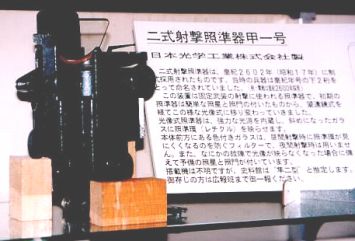 二式射撃照準器甲一号
日本光学工業株式会社製
二式射撃照準器は、皇紀2602年(昭和17年)に制
採用されたものです。当時の兵器は皇紀年号の下2桁を
とって命名されていました。
この装置は固定武装の射撃に使われる照準器で、初期の
照準器は簡単な照星と照門の付いたものから、望遠鏡式を
経てこの様な光像式に移り変わっていきました。
光像式照準器は、強力な光源を内蔵し、斜めになったガラ
スに照準環(レチクル)を映らせます。
本体前方にある色付きガラスは、昼間射撃時に照準環が見
にくくなるのを防ぐフィルターで、夜間射撃時は用いませ
ん。また、なにかの故障で光像が映らなくなった場合に備
えて予備の照星と照門が付いています。
搭載機は不明ですが、史料館は「隼二型」と推定します。
御存じの方は広報班まで御一報ください。